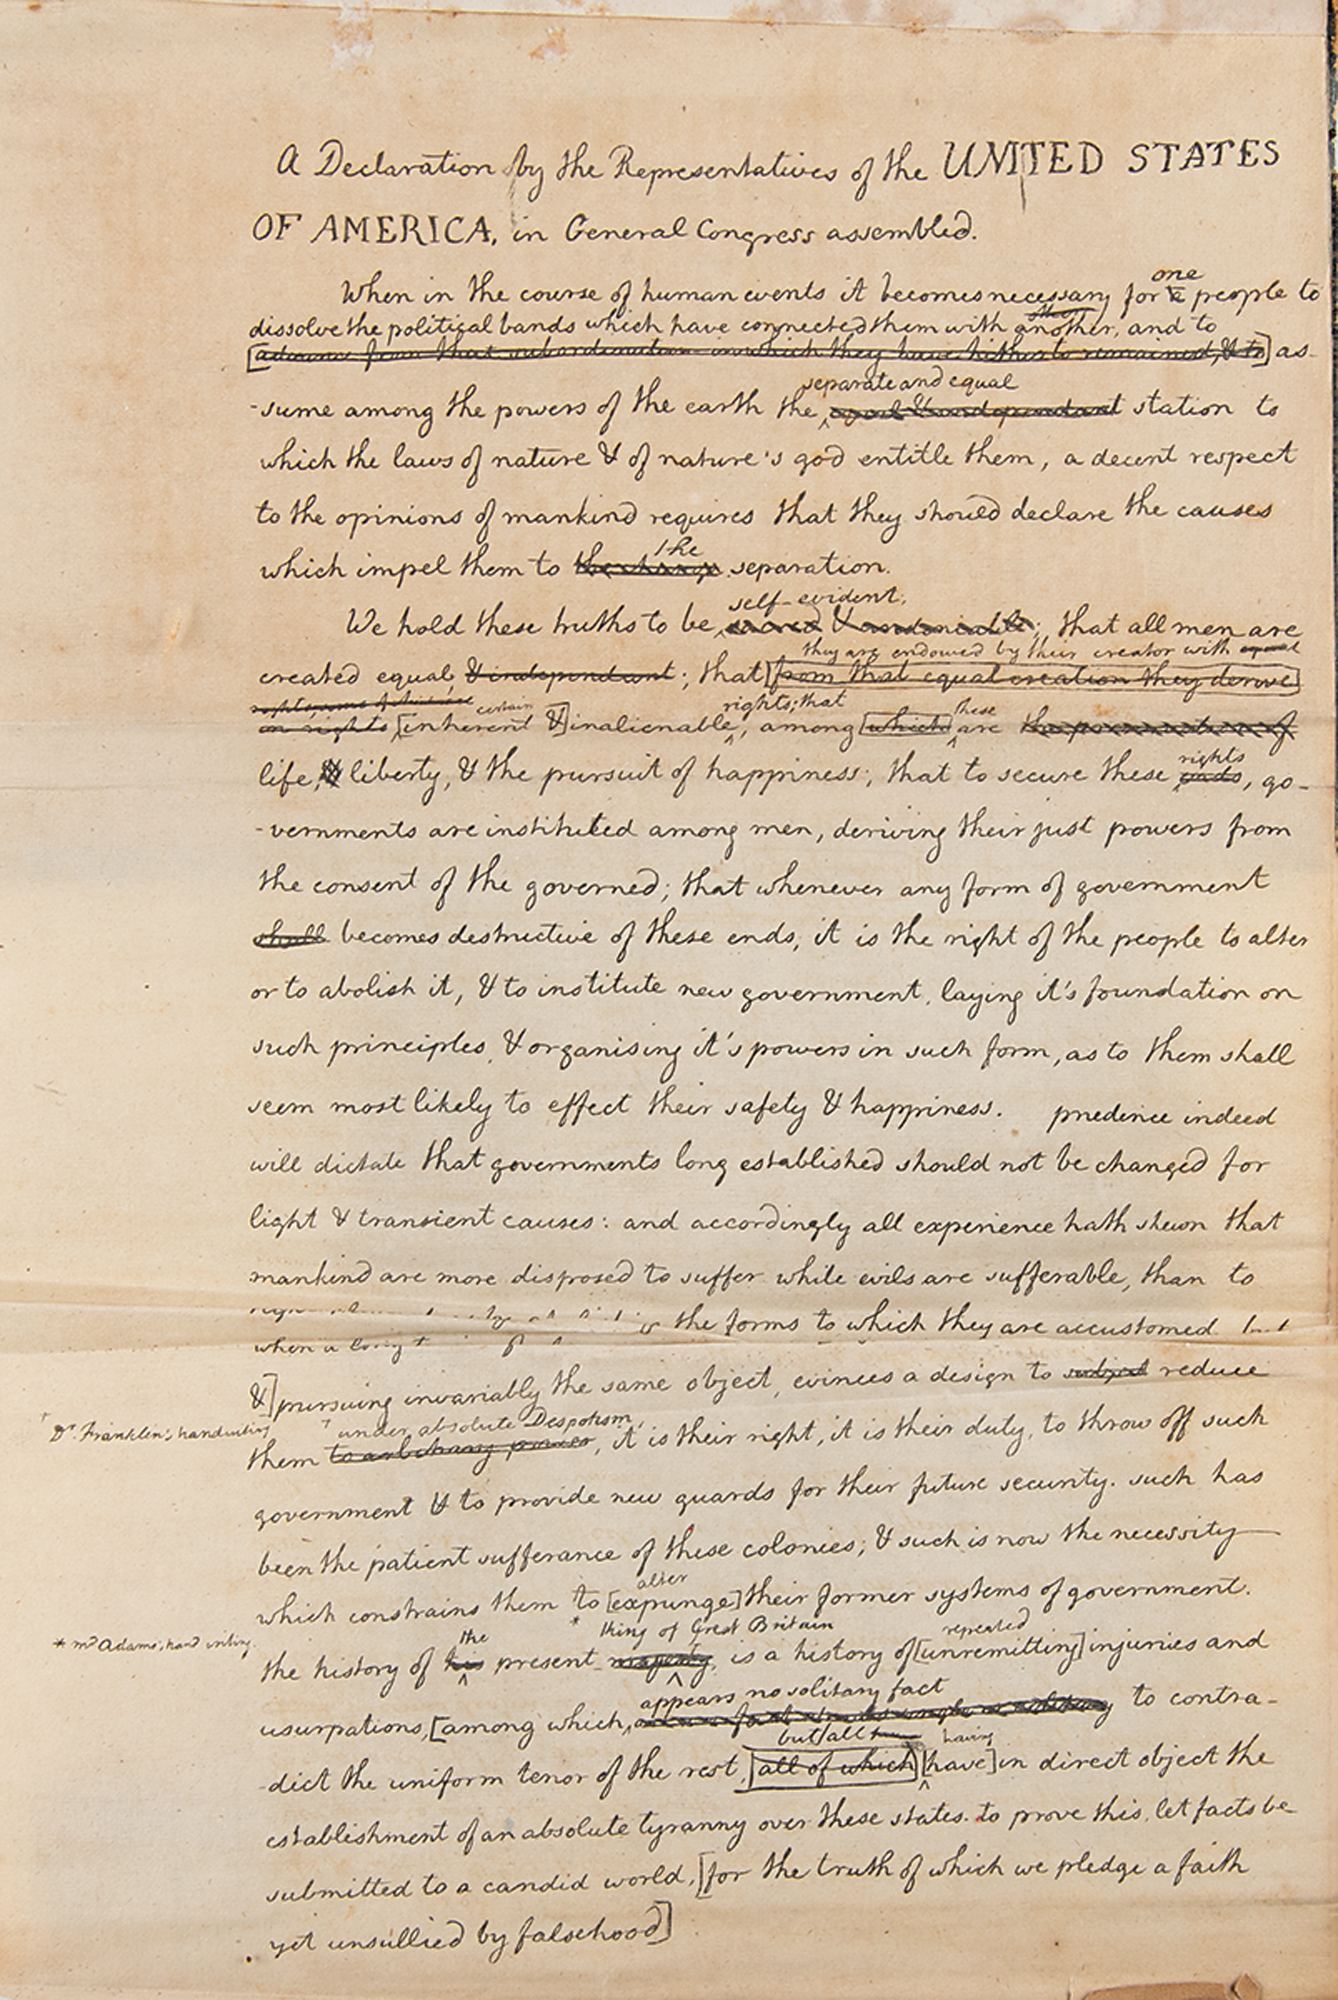 A Declaration by the Representatives of the UNITED STATES
OF AMERICA, in General Congress assembled.
one
When in the course of human events it becomes necessary for a people to
dissolve the political bands which have connected them with another, and to
[advance from that subordination in which they have hitherto remained, & to] as-
separate and equal
-sume among the powers of the earth the equal & independant station to
which the laws of nature & of nature's god entitle them, a decent respect
to the opinions of mankind requires that they should declare the causes
the
which impel them to the change separation.
self-evident,
We hold these truths to be sacred & undeniable; that all men are
they are endowed by their creator with equal
created equal & independant; that [from that equal creation they derive]
rights, some of which are certain rights; that these
in rights [inherent &] inalienable, among [which] are the preservation of
rights
life, & liberty, & the pursuit of happiness; that to secure these ends, go-
-vernments are instituted among men, deriving their just powers from
the consent of the governed; that whenever any form of government
shall becomes destructive of these ends, it is the right of the people to alter
or to abolish it, & to institute new government, laying it's foundation on
such principles, & organising it's powers in such form, as to them shall
seem most likely to effect their safety & happiness. prudence indeed
will dictate that governments long established should not be changed for
light & transient causes: and accordingly all experience hath shewn that
mankind are more disposed to suffer while evils are sufferable, than to
the forms to which they are accustomed.
when a long
&] pursuing invariably the same object, evinces a design to subject reduce
Dr. Franklin's handwriting under absolute Despotism,
them to arbitrary power, it is their right, it is their duty, to throw off such
government & to provide new guards for their future security. such has
been the patient sufferance of these colonies; & such is now the necessity
alter
which constrains them to [expunge] their former systems of government.
* Mr Adams' hand writing. the * king of Great Britain repeated
the history of his present majesty, is a history of [unremitting] injuries and
appears no solitary fact
usurpations, [among which, to contra-
but all have having
-dict the uniform tenor of the rest, [all of which] [have] in direct object the
establishment of an absolute tyranny over these states. to prove this, let facts be
submitted to a candid world, [for the truth of which we pledge a faith
yet unsullied by falsehood]